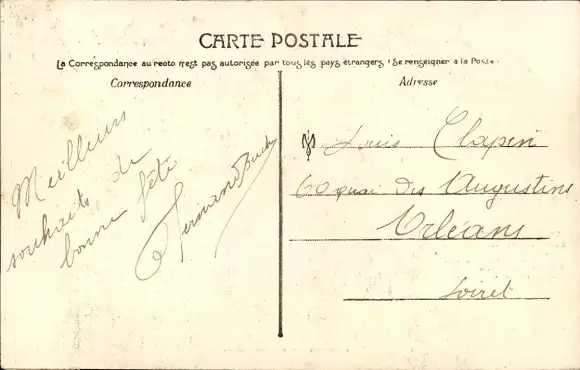 CARTE POSTALE
La Correspondance au recto n'est pas autorisée par tous les pays étrangers (Se renseigner à la Poste.)
Correspondance
Adresse
Meilleurs
souhaits de
bonne fête
Fernand
Louis Clapin
60 quai des Augustins
Orléans
Loiret